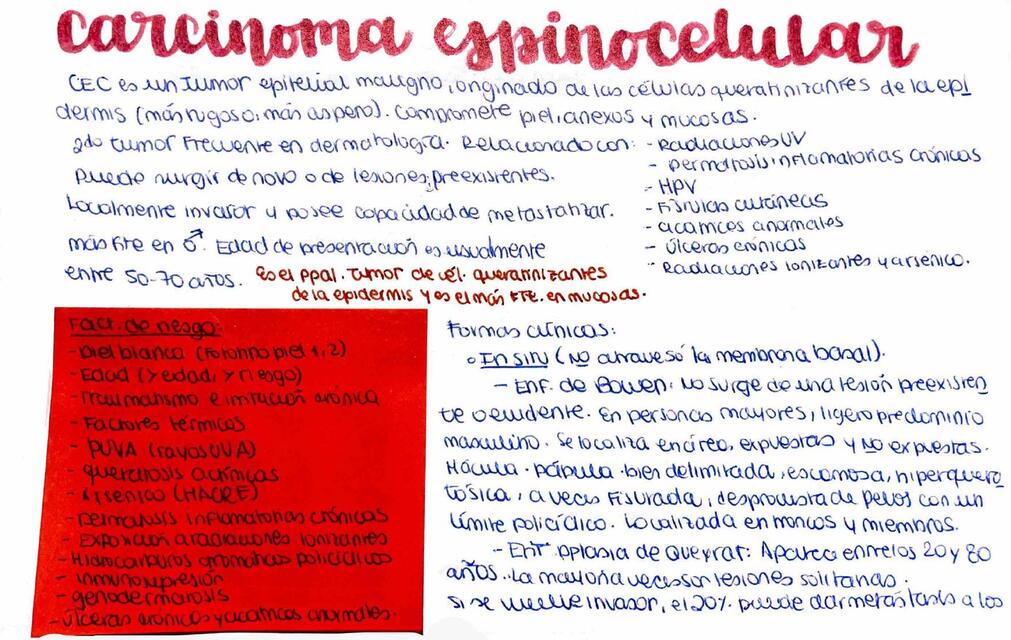 carcinoma espinocelular
CEC es un tumor epitelial maligno, originado de las células queratinizantes de la epi
dermis (más rugoso, más aspero). Compromete piel, anexos y mucosas.
2do tumor frecuente en dermatología. Relacionado con:
- Radiaciones UV
- Dermatosis inflamatorias crónicas
- HPV
- Fístulas cutáneas
- cicatrices anormales
- Úlceras crónicas
- Radiaciones ionizantes y arsénico.
Puede surgir de novo o de lesiones preexistentes.
Localmente invasor y posee capacidad de metastatizar.
más fte en ♂. Edad de presentación es usualmente
entre 50-70 años. Es el ppal. tumor de cél. queratinizantes
de la epidermis y es el más FTE. en mucosas.
Fact. de riesgo:
- piel blanca (Fototipo piel 1, 2)
- Edad (> edad, > riesgo)
- Traumatismo e irritación crónica
- Factores térmicos
- PUVA (rayos UVA)
- queratosis actínicas
- Arsénico (HACRE)
- Dermatosis inflamatorias crónicas
- Exposición a radiaciones ionizantes
- Hidrocarburos aromáticos policíclicos
- inmunosupresión
- genodermatosis
- úlceras crónicas y cicatrices anormales.
Formas clínicas:
o En situ (NO atravesó la membrana basal).
- Enf. de Bowen: No surge de una lesión preexisten
te o evidente. En personas mayores, ligero predominio
masculino. Se localiza en áreas, expuestas y NO expuestas.
Mácula-pápula bien delimitada, escamosa, hiperquera
tósica, a veces fisurada, desprovista de pelos con un
límite policíclico. Localizada en troncos y miembros.
- Eritroplasia de Queyrat: Aparece entre los 20 y 80
años. La mayoría veces son lesiones solitarias.
Si se vuelve invasor, el 20% puede dar metástasis a los